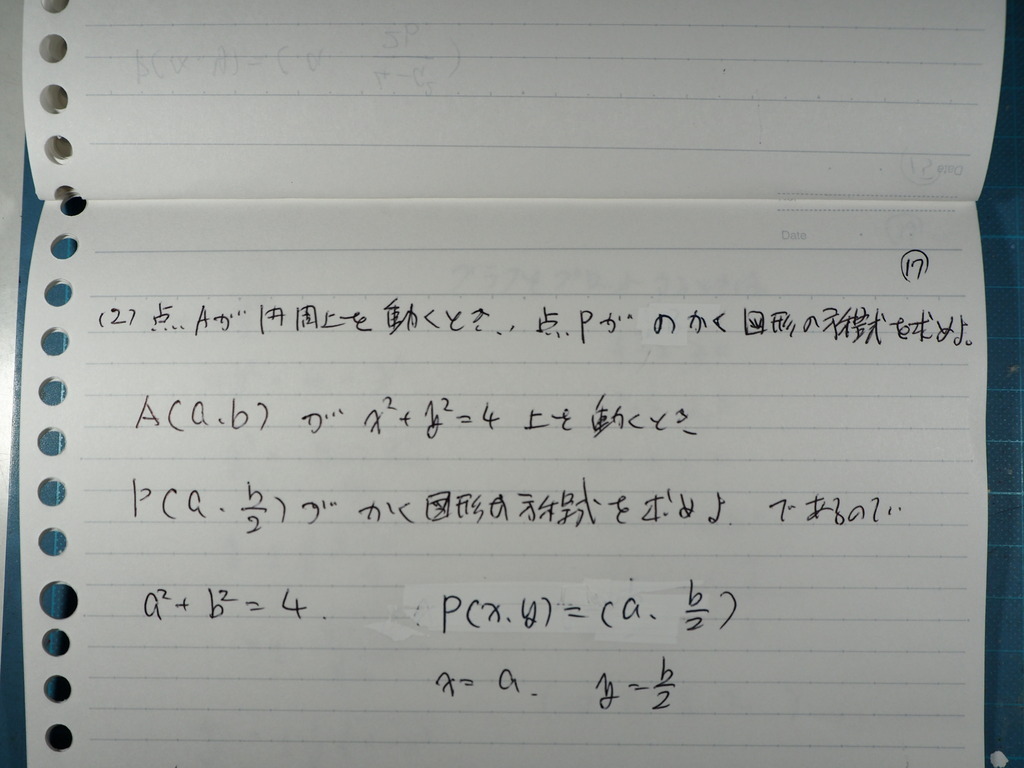 Date
Date
⑰
(2) 点Aが円周上を動くとき、点Pが のかく図形の方程式を求めよ。
A(a、b) が x²+y²=4 上を動くとき
P(a、b/2)が かく図形の方程式を求めよ. であるので、
a²+b²=4. P(x、y)=(a、b/2)
x=a. y=b/2